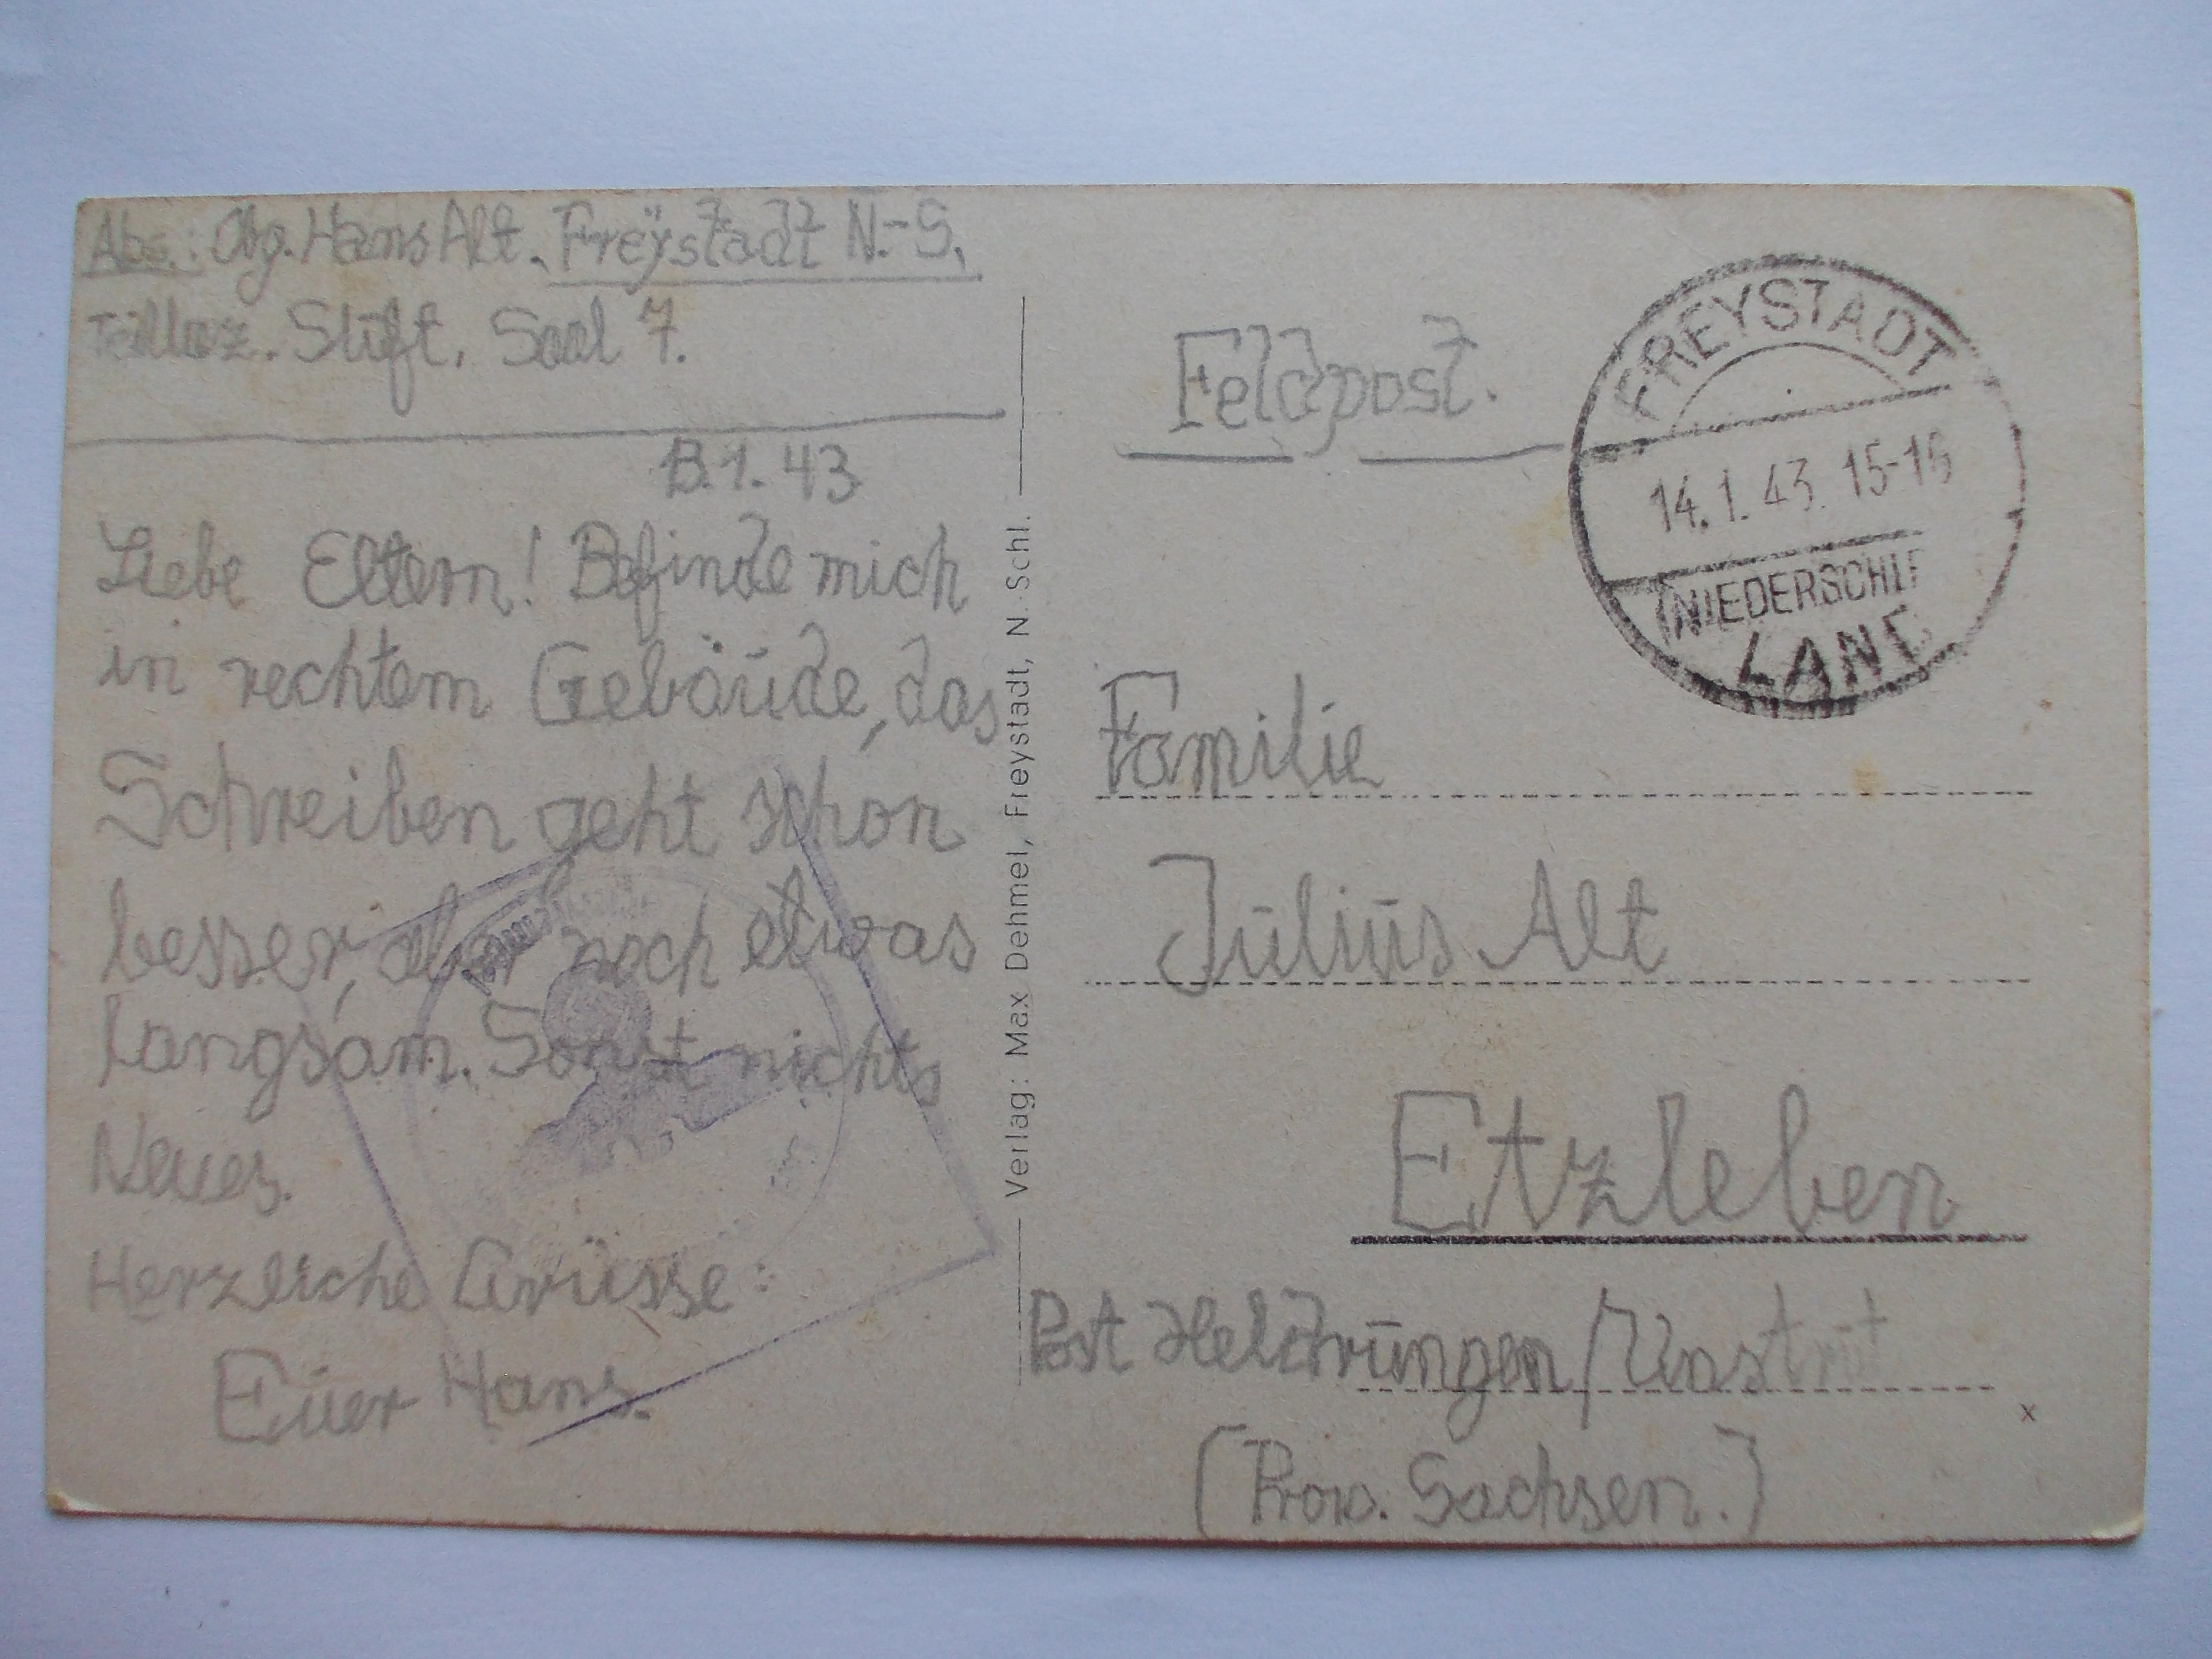 Abs.: Obg. Hans Alt. Freystadt N.-S.
Teillaz. Stift, Saal 7.
13.1.43
Liebe Eltern! Befinde mich
in rechtem Gebäude, das
Schreiben geht schon
besser, aber noch etwas
langsam. Sonst nichts
Neues.
Herzliche Grüsse:
Euer Hans.
Verlag: Max Dehmel, Freystadt, N. Schl.
Feldpost.
FREYSTADT
14.1.43. 15-16
(NIEDERSCHL
LAND
Familie
Julius Alt
Etzleben
Post Heldrungen/Unstrut
x
(Prov. Sachsen.)